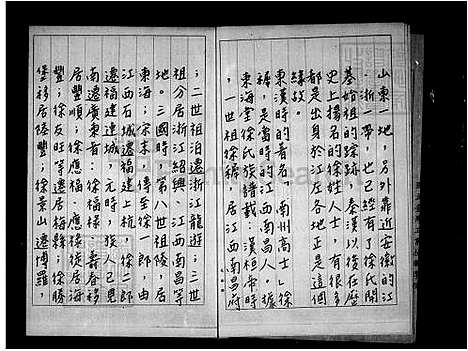 山東一地,另外靠近安徽的江
、浙一帶,也已經有了徐氏開
基始祖的踪跡。秦漢以後在歷
史上揚名的徐姓人士,有很多
都是出身於江左各地正是這個
緣故。
東漢時的著名「南州高士」徐
穉,是當時的江西南昌人。據
東海堂徐氏族譜載:漢桓帝時
,一世祖徐穉,居江西南昌府
;二世祖泊遷浙江龍游;三世
祖分居浙江紹興、江西南昌等
地。三國時,第八世祖陵,居
東海;宋末,傳至徐一郎,由
江西石城遷福建上杭,徐二郎
遷福建連城,元時,族人已見
南遷廣東者:徐福祿、壽春移
居豐順;徐應福、應祿徙居海
豐;徐友旺等遷居梅縣;徐勝
堡移居陸豐;徐景山遷博羅,